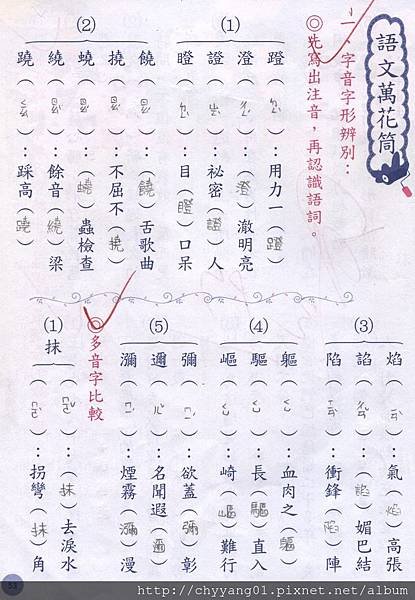 語文萬花筒
一、字音字形辨別：
◎先寫出注音，再認識語詞。
(1)
蹬（ ）：用力一（蹬）
澄（ ）：（澄）澈明亮
證（ ）：祕密（證）人
瞪（ ）：目（瞪）口呆
(2)
饒（ㄖㄠˊ）：（饒）舌歌曲
撓（ㄋㄠˊ）：不屈不（撓）
蟯（ㄖㄠˊ）：（蟯）蟲檢查
繞（ㄖㄠˋ）：餘音（繞）梁
蹺（ㄑㄧㄠ）：踩高（蹺）
(3)
焰（ㄧㄢˋ）：氣（焰）高張
諂（ ）：（諂）媚巴結
陷（ㄒㄧㄢˋ）：衝鋒（陷）陣
(4)
軀（ㄑㄩ）：血肉之（軀）
驅（ㄑㄩ）：長（驅）直入
嶇（ㄑㄩ）：崎（嶇）難行
(5)
彌（ㄇㄧˊ）：欲蓋（彌）彰
邇（ㄦˇ）：名聞遐（邇）
瀰（ㄇㄧˊ）：煙霧（瀰）漫
◎多音字比較
(1)
抹
（ㄇㄛˇ）：（抹）去淚水
（ㄇㄛˋ）：拐彎（抹）角
53
http://chyyang01.pixnet.net/album